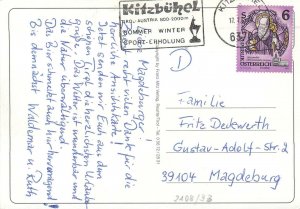 Magdeburger!
recht vielen Dank für die
herrliche Ansichtskarte!
Jetzt senden wir Euch aus dem
schönen Tirol die herzlichsten Urlaubs-
grüße. Das Wetter ist wunderbar und
die Natur überwältigend.
Das Bier schmeckt auch hervorragend!
Bis demnächst Waldemar u. Ruth
Kitzbühel
AUSTRIA 800-2000m
SOMMER WINTER
SPORT-ERHOLUNG
6370
6
REPUBLIK
ÖSTERREICH
Familie
Fritz Deckwerth
Gustav-Adolf-Str. 2
39104 Magdeburg